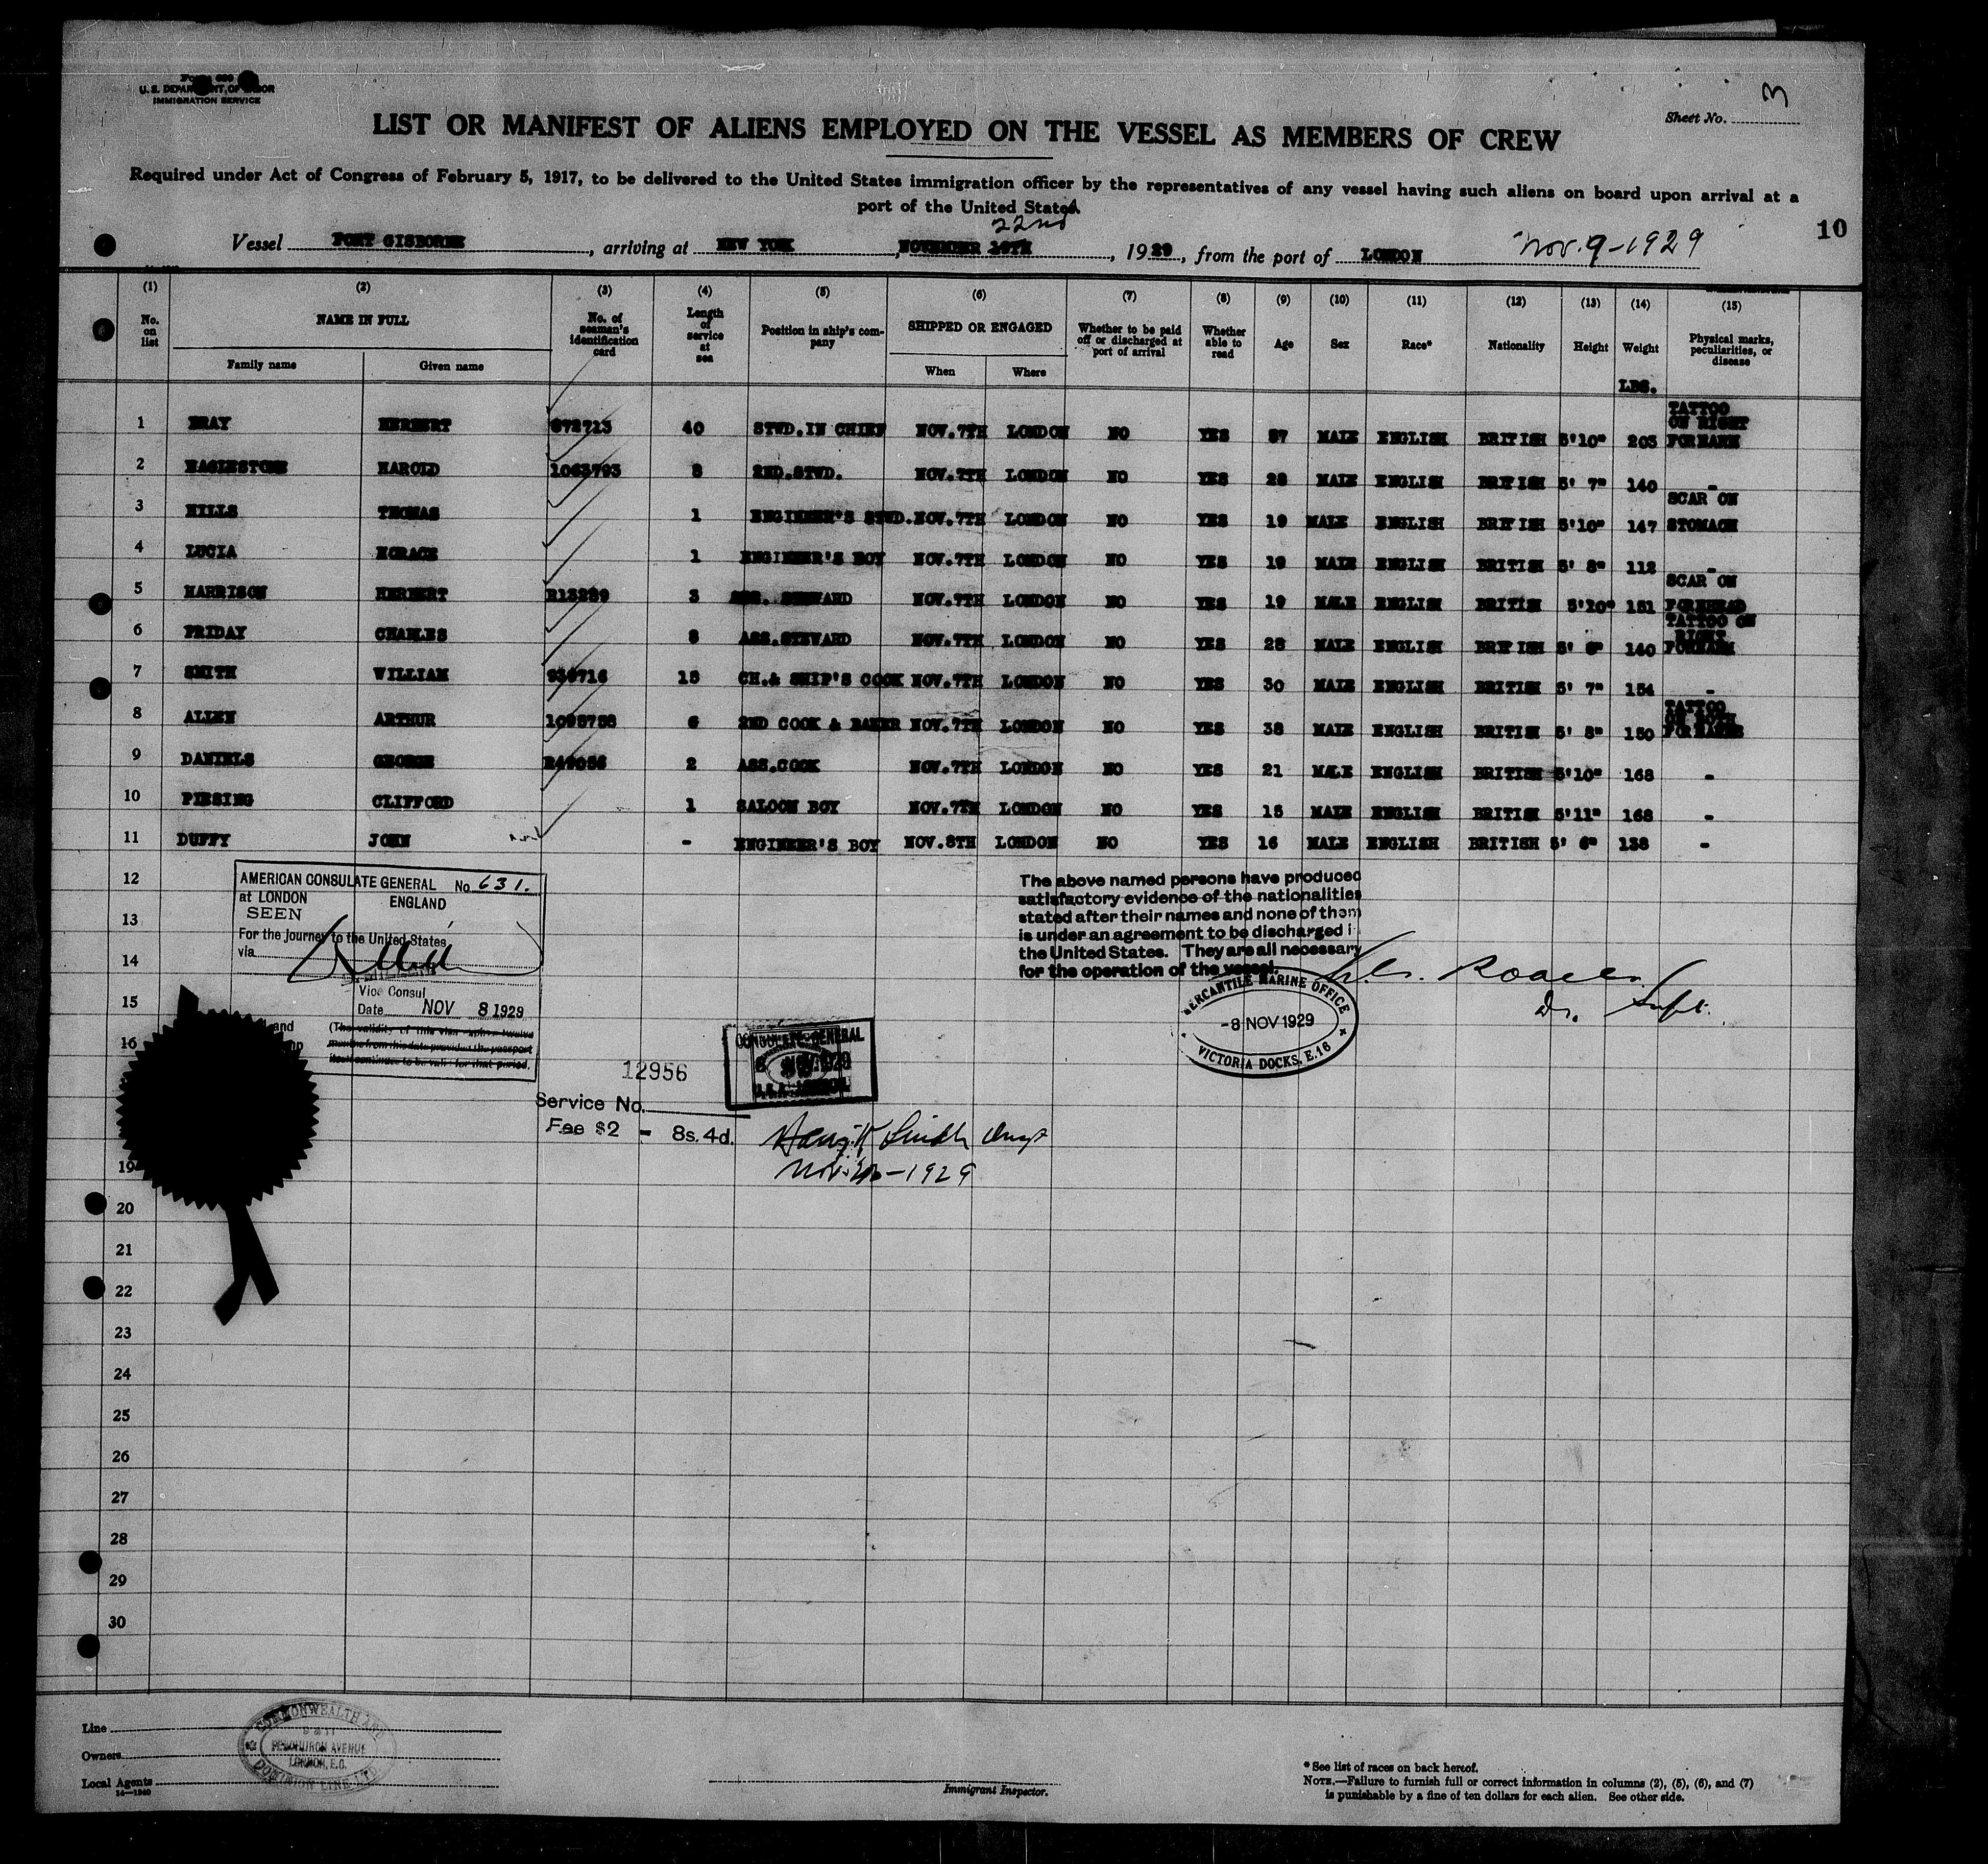 U. S. DEPARTMENT OF LABOR
IMMIGRATION SERVICE
Sheet No. 3
LIST OR MANIFEST OF ALIENS EMPLOYED ON THE VESSEL AS MEMBERS OF CREW
Required under Act of Congress of February 5, 1917, to be delivered to the United States immigration officer by the representatives of any vessel having such aliens on board upon arrival at a
port of the United States.
22nd
10
Vessel PORT GISBORNE, arriving at NEW YORK, NOVEMBER, 1929, from the port of LONDON Nov. 9-1929
(1) (2) (3) (4) (5) (6) (7) (8) (9) (10) (11) (12) (13) (14) (15)
No. on list NAME IN FULL No. of seaman's identification card Length of service at sea Position in ship's company SHIPPED OR ENGAGED Whether to be paid off or discharged at port of arrival Whether able to read Age Sex Race* Nationality Height Weight Physical marks, peculiarities, or disease
Family name Given name When Where
LBS.
1 BRAY HERBERT 972713 40 STWD.IN CHIEF NOV.7TH LONDON NO YES 57 MALE ENGLISH BRITISH 5'10" 203 TATTOO ON RIGHT FOREARM
2 EAGLESTONE HAROLD 1063793 8 2ND.STWD. NOV.7TH LONDON NO YES 28 MALE ENGLISH BRITISH 5' 7" 140 -
3 HILLS THOMAS 1 ENGINEER'S STWD. NOV.7TH LONDON NO YES 19 MALE ENGLISH BRITISH 5'10" 147 SCAR ON STOMACH
4 LUCIA HORACE 1 ENGINEER'S BOY NOV.7TH LONDON NO YES 19 MALE ENGLISH BRITISH 5' 8" 112 -
5 HARRISON HERBERT R13289 3 ASS. STEWARD NOV.7TH LONDON NO YES 19 MALE ENGLISH BRITISH 5'10" 151 SCAR ON FOREHEAD
6 FRIDAY CHARLES 8 ASS.STEWARD NOV.7TH LONDON NO YES 28 MALE ENGLISH BRITISH 140 TATTOO ON RIGHT FOREARM
7 SMITH WILLIAM 939716 15 CH.& SHIP'S COOK NOV.7TH LONDON NO YES 30 MALE ENGLISH BRITISH 5' 7" 154 -
8 ALLEN ARTHUR 1095758 6 2ND COOK & BAKER NOV.7TH LONDON NO YES 38 MALE ENGLISH BRITISH 5' 8" 150 TATTOO ON BOTH FOREARMS
9 DANIELS GEORGE R49056 2 ASS.COOK NOV.7TH LONDON NO YES 21 MALE ENGLISH BRITISH 5'10" 168 -
10 PIESING CLIFFORD 1 SALOON BOY NOV.7TH LONDON NO YES 15 MALE ENGLISH BRITISH 5'11" 168 -
11 DUFFY JOHN - ENGINEER'S BOY NOV.8TH LONDON NO YES 16 MALE ENGLISH BRITISH 5' 6" 138 -
12
13
14
15
16
19
20
21
22
23
24
25
26
27
28
29
30
AMERICAN CONSULATE GENERAL No. 631.
at LONDON ENGLAND
SEEN
For the journey to the United States
via
Vice Consul
Date NOV 8 1929
(The validity of this visa expires twelve
months from this date provided the passport
itself continues to be valid for that period.
The above named persons have produced
satisfactory evidence of the nationalities
stated after their names and none of them
is under an agreement to be discharged i
the United States. They are all necessary
for the operation of the vessel.
MERCANTILE MARINE OFFICE
-8 NOV 1929
VICTORIA DOCKS, E.16
Dr. Supt.
CONSULATE-GENERAL
12956
Service No.
Fee $2 - 8s. 4d.
Line
Owners
Local Agents
14-1240
COMMONWEALTH AND
DOMINION LINE LTD
9 & 11
FENCHURCH AVENUE
LONDON, E.C.
Immigrant Inspector.
* See list of races on back hereof.
NOTE.—Failure to furnish full or correct information in columns (2), (5), (6), and (7)
is punishable by a fine of ten dollars for each alien. See other side.